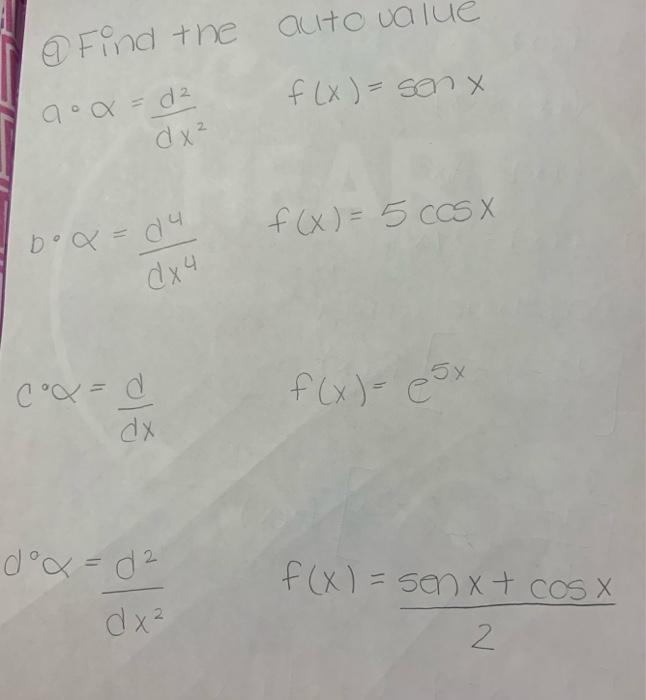 ⑨ Find the auto value
a∘ α = d²/dx² f(x) = sen x
b∘ α = d⁴/dx⁴ f(x) = 5 cos x
c∘ α = d/dx f(x) = e^5x
d∘ α = d²/dx² f(x) = sen x + cos x / 2